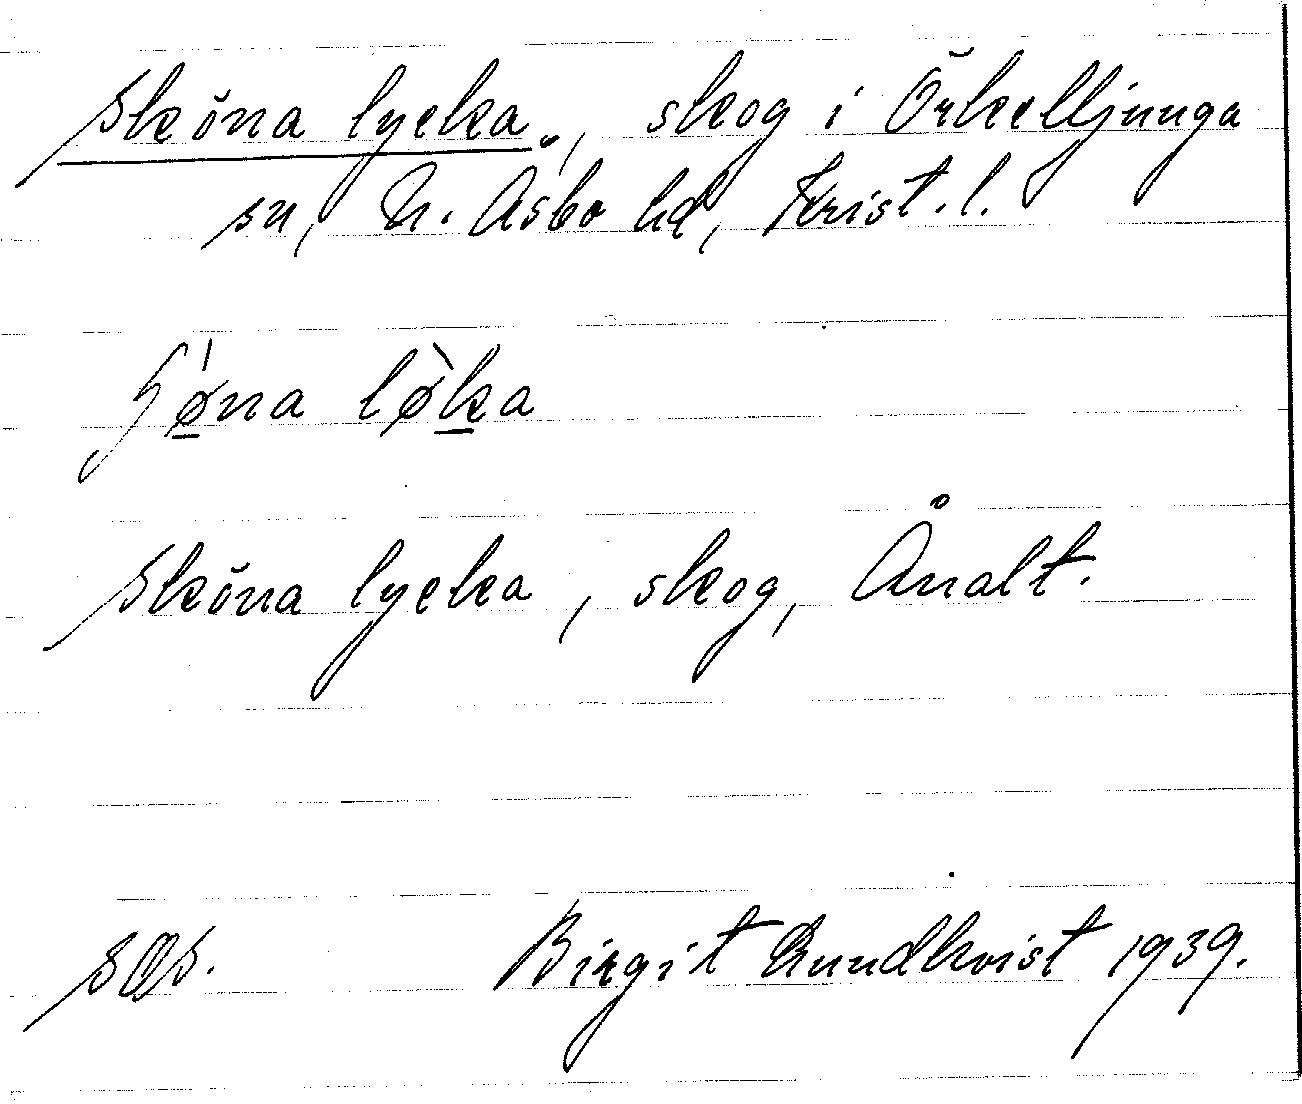 Sköna lycka., skog i Örkelljunga
sn, N. Åsbo hd, Krist. l.
ʃǿ̲na lø̲̀k̲a
Sköna lycka, skog, Ånalt.
SOS. Birgit Lundkvist 1939.